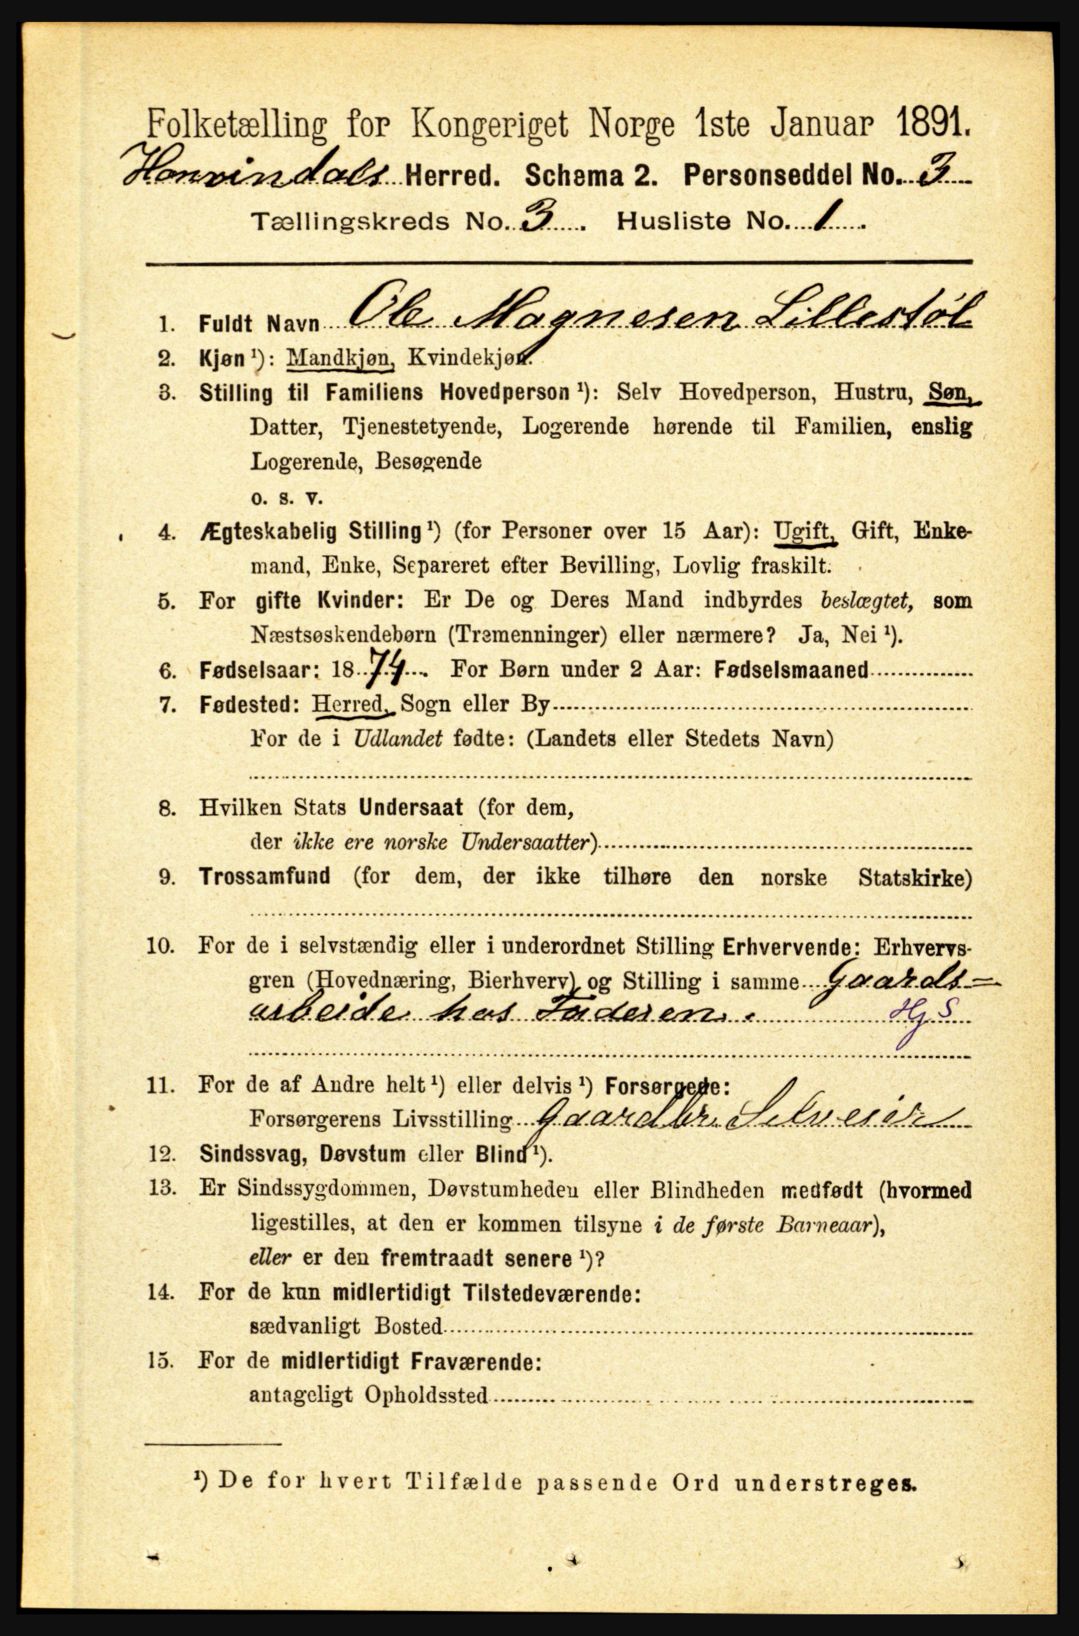 Folketælling for Kongeriget Norge 1ste Januar 1891.
Hornindals Herred. Schema 2. Personseddel No. 3
Tællingskreds No. 3. Husliste No. 1.
1. Fuldt Navn Ole Magnesen Lillestøl
2. Kjøn ¹): Mandkjøn, Kvindekjøn.
3. Stilling til Familiens Hovedperson ¹): Selv Hovedperson, Hustru, Søn,
Datter, Tjenestetyende, Logerende hørende til Familien, enslig
Logerende, Besøgende
o. s. v.
4. Ægteskabelig Stilling ¹) (for Personer over 15 Aar): Ugift, Gift, Enke-
mand, Enke, Separeret efter Bevilling, Lovlig fraskilt.
5. For gifte Kvinder: Er De og Deres Mand indbyrdes beslægtet, som
Næstsøskendebørn (Tremenninger) eller nærmere? Ja, Nei ¹).
6. Fødselsaar: 1874. For Børn under 2 Aar: Fødselsmaaned
7. Fødested: Herred, Sogn eller By
For de i Udlandet fødte: (Landets eller Stedets Navn)
8. Hvilken Stats Undersaat (for dem,
der ikke ere norske Undersaatter)
9. Trossamfund (for dem, der ikke tilhøre den norske Statskirke)
10. For de i selvstændig eller i underordnet Stilling Erhvervende: Erhvervs-
gren (Hovednæring, Bierhverv) og Stilling i samme Gaards=
arbeide hos Faderen. Hj S
11. For de af Andre helt ¹) eller delvis ¹) Forsørgede:
Forsørgerens Livsstilling Gaardbr. Selveier
12. Sindssvag, Døvstum eller Blind ¹).
13. Er Sindssygdommen, Døvstumheden eller Blindheden medfødt (hvormed
ligestilles, at den er kommen tilsyne i de første Barneaar),
eller er den fremtraadt senere ¹)?
14. For de kun midlertidigt Tilstedeværende:
sædvanligt Bosted
15. For de midlertidigt Fraværende:
antageligt Opholdssted
¹) De for hvert Tilfælde passende Ord understreges.